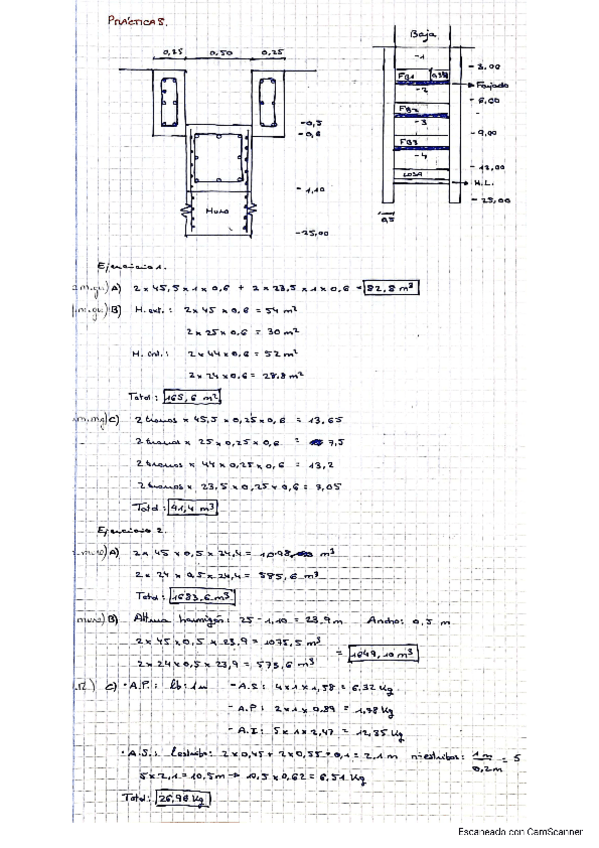 PRÁCTICA 5.
0,25 0,50 0,25
-0,5
-0,6
-1,10
MURO
-25,00
Baja
-1
-3,00
FB1
Forjado
-2
-6,00
FB2
-3
-9,00
FB3
-4
-12,00
LOSA
H.L.
-25,00
0,5
Ejercicio 1.
A) 2 x 45,5 x 1 x 0,6 + 2 x 23,5 x 1 x 0,6 = 82,8 m³
B) H. ext.: 2 x 45 x 0,6 = 54 m²
2 x 25 x 0,6 = 30 m²
H. int.: 2 x 44 x 0,6 = 52 m²
2 x 24 x 0,6 = 28,8 m²
Total: 165,6 m²
C) 2 tramos x 45,5 x 0,25 x 0,6 = 13,65
2 tramos x 25 x 0,25 x 0,6 = 7,5
2 tramos x 44 x 0,25 x 0,6 = 13,2
2 tramos x 23,5 x 0,25 x 0,6 = 7,05
Total: 41,4 m³
Ejercicio 2.
A) 2 x 45 x 0,5 x 24,4 = 1098 m³
2 x 24 x 0,5 x 24,4 = 585,6 m³
Total: 1683,6 m³
muro) B) Altura hormigón: 25 - 1,10 = 23,9 m Ancho: 0,5 m
2 x 45 x 0,5 x 23,9 = 1075,5 m³
= 1649,10 m³
2 x 24 x 0,5 x 23,9 = 573,6 m³
C) · A.P.: lb: 1m - A.S: 4 x 1 x 1,58 = 6,32 Kg
- A.P: 2 x 1 x 0,89 = 1,78 Kg
- A.I: 5 x 1 x 2,47 = 12,35 Kg
· A.S.: Lestribo: 2 x 0,45 + 2 x 0,55 + 0,1 = 2,1 m nº estribos: 1m/0,2m = 5
5 x 2,1 = 10,5 m → 10,5 x 0,62 = 6,51 Kg
Total: 26,96 Kg
Escaneado con CamScanner